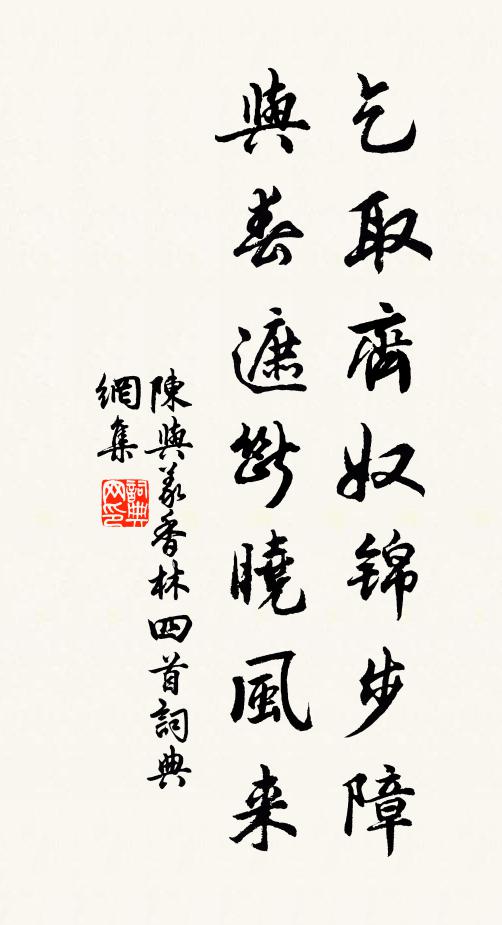 乞取齊奴錦步障
與春遮斷曉風来
陳與義香林四首詞典
網集
詞典網印